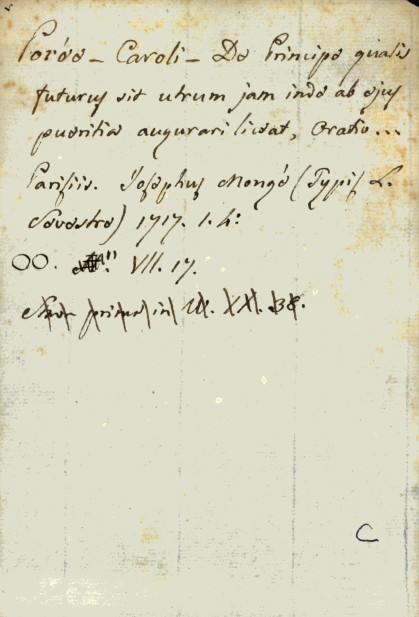 Porée - Caroli - De Principe qualis
futurus sit utrum jam inde ab ejus
pueritia augurari liceat, Oratio...
Parisiis. Josephus Mongé (Typis L.
Sevestre) 1717. 1. 4º
OO. VII. 17.
prima in XXI. 38.
C